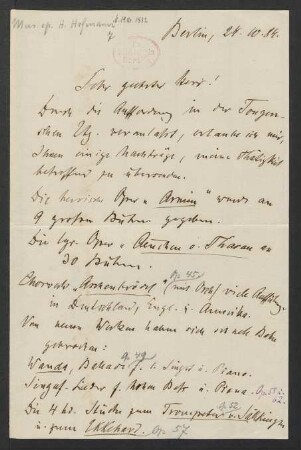 Mus. ep. H. Hofmann
7
Berlin, 24.10.84.
Sehr geehrter Herr!
Durch die Aufforderung in der Tonger-
schen Ztg. veranlaßt, erlaube ich mir,
Ihnen einige Nachträge, meine Thätigkeit
betreffend zu übersenden.
Die heroische Oper „Armin“ wurde an
9 großen Bühnen gegeben.
Die lyr. Oper „Aennchen v. Tharau an
30 Bühnen.
Op. 45
Chorwerk, Aschenbrödel (mit Orch) viele Aufführ.
in Deutschland, Engl. u. Amerika.
Von neuen Werken haben sich schnell Bahn
gebrochen:
Op. 49
Wanda, Ballade f. Singst u. Piano.
Singuf. Lieder f. hohen Bass u. Piano. Op. 51 u.
52.
Op. 52
Die 4 hd. Stücke zum Trompeter v. Säkkingen
u. zum Ekkehard. Op. 57